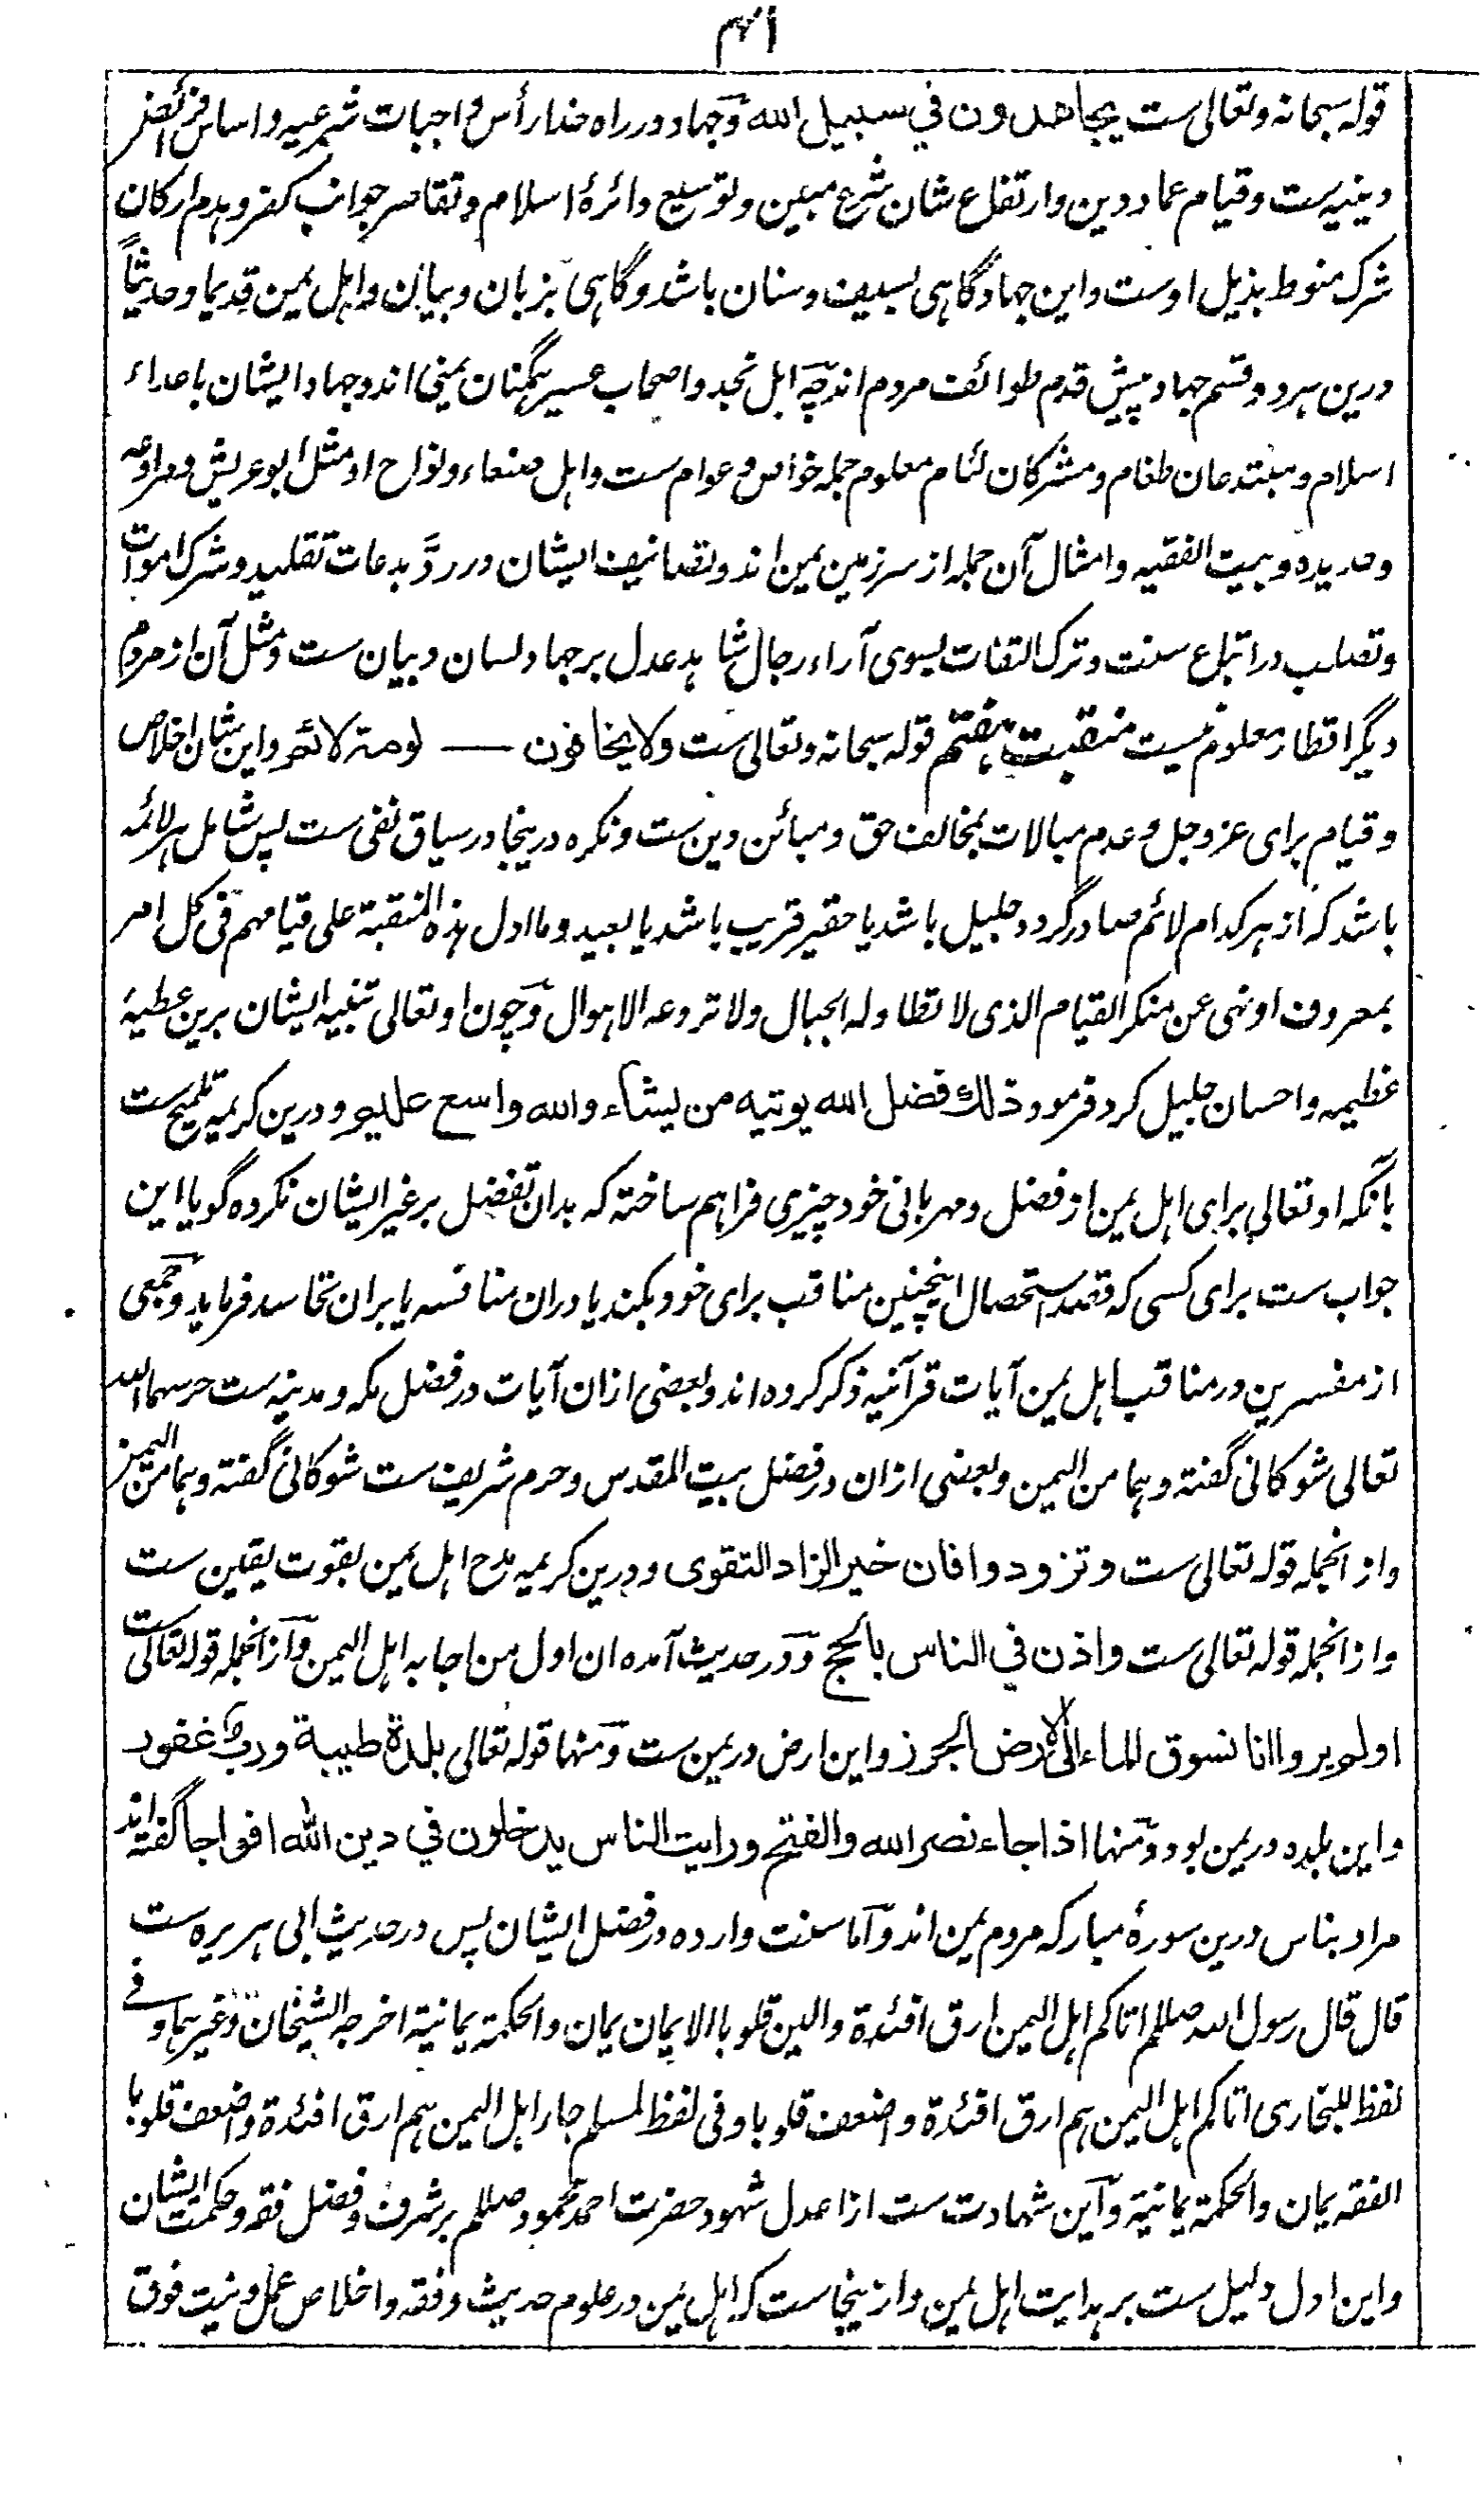 ۴۱
قوله سبحانه وتعالی ست یجاهدون في سبیل الله وجهاد در راه خدا رأس واجبات شرعیه و اساس فرائض
دینیه ست و قیام عماد دین و ارتفاع شان شرع مبین و توسیع دائرهٔ اسلام و تقاصر جوانب کفر و هدم ارکان
شرک منوط بذیل اوست و این جهاد گاهی بسیف و سنان باشد و گاهی بزبان و بیان و اهل یمن قدیما و حدیثاً
درین هر دو قسم جهاد پیش قدم طوائف مردم اند چه اهل نجد و اصحاب عسیر همگنان یمنی اند و جهاد ایشان با عداء
اسلام و مبتدعان طغام و مشرکان لئام معلوم جمله خواص و عوام ست و اهل صنعاء و نواح او مثل ابو عریش و مراوعه
و حدیده و بیت الفقیه و امثال آن جمله از سرزمین یمن اند و تصانیف ایشان در ردّ بدعات تقلید و شرک اموات
و تصلب در اتباع سنت و ترک التفات بسوی آراء رجال شاهد عدل بر جهاد لسان و بیان ست و مثل آن از مردم
دیگر اقطار معلوم نیست منقبت هفتم قوله سبحانه وتعالی ست ولا یخافون — لومة لائم و این بشان اخلاص
و قیام برای عز و جل و عدم مبالات بمخالف حق و مبائن دین ست و نکره درینجا در سیاق نفی ست پس شامل هر لائمه
باشد که از هر کدام لائم صادر گردد جلیل باشد یا حقیر قریب باشد یا بعید و ما ادل هذه المنقبة علی قیامهم فی کل امر
بمعروف او نهی عن منکر القیام الذی لا تطاوله الجبال ولا تروعه الاهوال و چون او تعالی تنبیه ایشان برین عطیهٔ
عظیمه و احسان جلیل کرد فرمود ذلك فضل الله یوتیه من یشاء والله واسع علیم و درین کریمه تلمیح ست
بآنکه او تعالی برای اهل یمن از فضل و مهربانی خود چیزی فراهم ساخته که بدان تفضل بر غیر ایشان نکرده گویا این
جواب ست برای کسی که قصد استحصال اینچنین مناقب برای خود بکند یا در ان منافسه یا بران تحاسد فرماید و جمعی
از مفسرین در مناقب اهل یمن آیات قرآنیه ذکر کرده اند و بعضی ازان آیات در فضل مکه و مدینه ست حرسهما الله
تعالی شوکانی گفته و هما من الیمن و بعضی ازان در فضل بیت المقدس و حرم شریف ست شوکانی گفته و هما من الیمن
و از انجمله قوله تعالی ست وتزودوا فان خیر الزاد التقوی و درین کریمه مدح اهل یمن بقوت یقین ست
و از انجمله قوله تعالی ست واذن في الناس بالحج و در حدیث آمده ان اول من اجابه اهل الیمن و از انجمله قوله تعالی ست
اولم یروا انا نسوق الماء الی الارض الجرز و این ارض در یمن ست و منها قوله تعالی بلدة طیبة ورب غفور
و این بلده در یمن بود و منها اذا جاء نصر الله والفتح ورایت الناس یدخلون في دین الله افواجا گفته اند
مراد بناس درین سورهٔ مبارکه مردم یمن اند و اما سنت وارده در فضل ایشان پس در حدیث ابی هریره ست
قال قال رسول الله صللم اتاکم اهل الیمن ارق افئدة و الین قلوبا الایمان یمان و الحکمة یمانیة اخرجه الشیخان و غیرهما و فی
لفظ للبخاری اتاکم اهل الیمن هم ارق افئدة و اضعف قلوبا و فی لفظ لمسلم جاء اهل الیمن هم ارق افئدة و اضعف قلوبا
الفقه یمان و الحکمة یمانیة و این شهادت ست از اعدل شهود حضرت احمد محمود صللم بر شرف و فضل فقه و حکمت ایشان
و این ادل دلیل ست بر هدایت اهل یمن و ازینجاست که اهل یمن در علوم حدیث و فقه و اخلاص عمل و نیت فوق